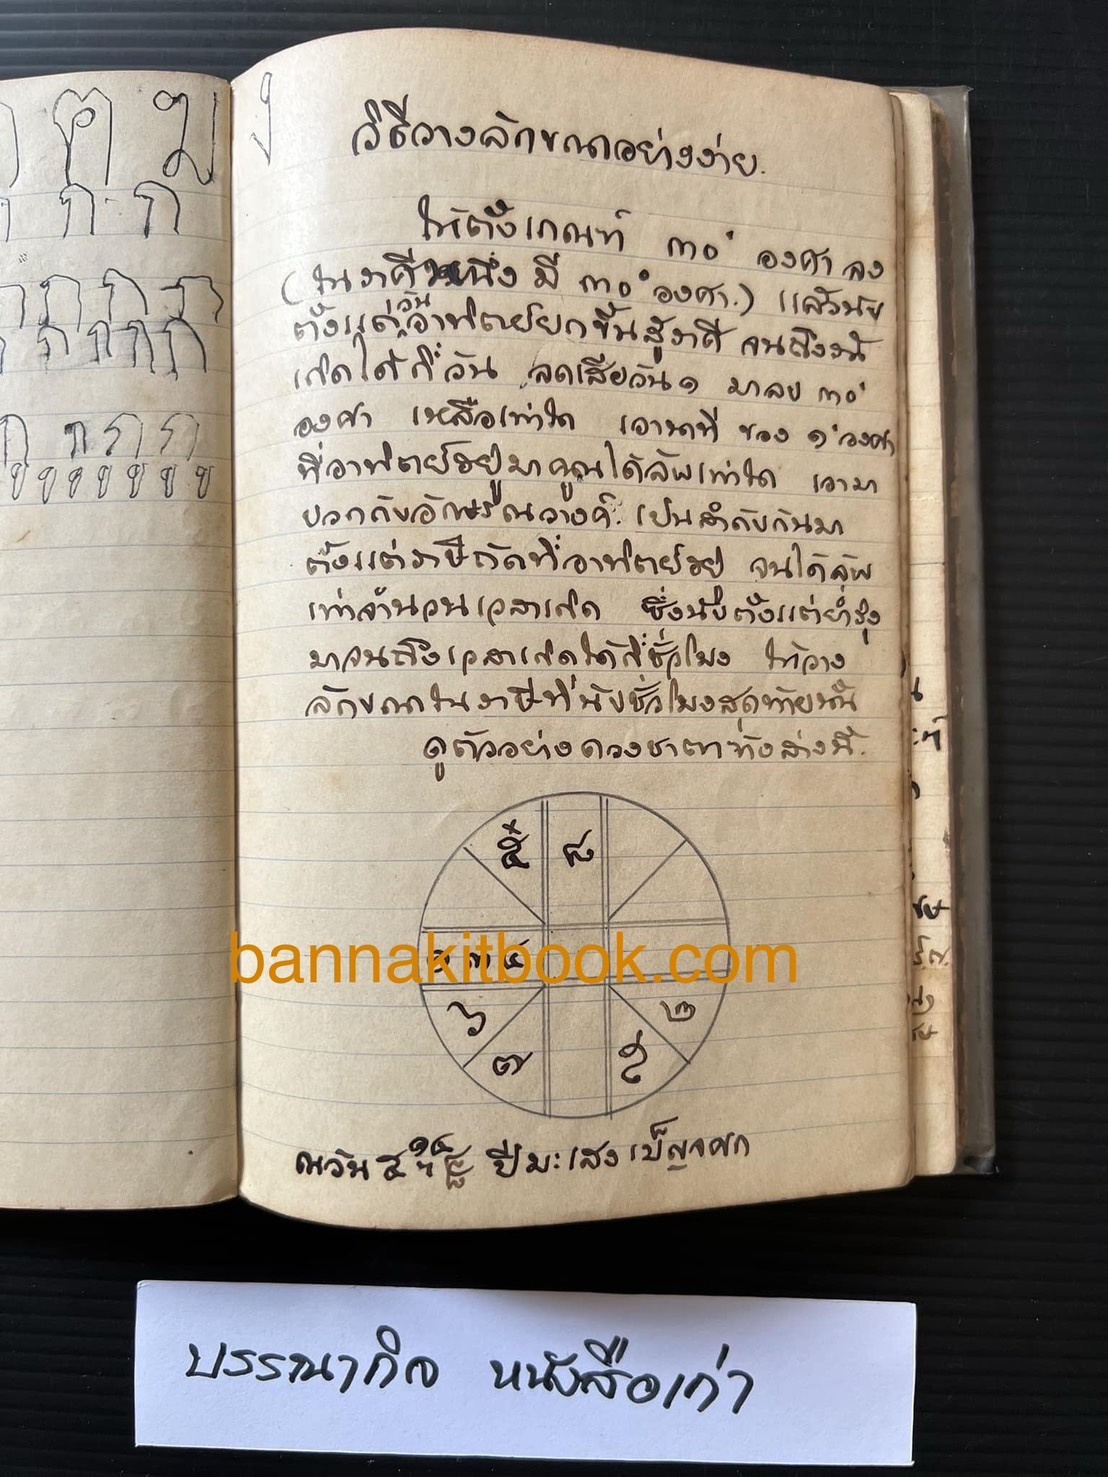 ฤ ฅ ฆ
ก ก ก
ก ก ก ก
ก ก ก ก ก
ก ก ร ร
ข ข ข ข ข ข ข
วิธีวางลักขณาอย่างง่าย.
ให้ตั้งเกณฑ์ ๓๐° องศา ลง
(ในราศีหนึ่ง มี ๓๐° องศา.) แล้วนับ
ตั้งแต่วันอาทิตย์ยกขึ้นสู่ราศี จนถึงวันที่
เกิดได้กี่วัน ลดเสียวัน ๑ มาลบ ๓๐°
องศา เหลือเท่าใด เอานาที ของ ๑°องศา
ที่อาทิตย์อยู่มาคูณได้ลัพเท่าใด เอามา
บวกกับอักษรณวางค์. เป็นลำดับกันมา
ตั้งแต่ราษีถัดที่อาทิตย์อยู่ จนได้ลัพ
เท่าจำนวนเวลาเกิด ซึ่งนับตั้งแต่ย่ำรุ่ง
มาจนถึงเวลาเกิดได้กี่ชั่วโมง ให้วาง
ลักขณาในราษีที่นับชั่วโมงสุดท้ายนั้น
ดูตัวอย่างดวงชาตาข้างล่างนี้.
๘
bannakitbook.com
๖
๒
๗
ณวัน ๕ ปีมะเส็ง เบ็ญจศก
บรรณากิจ หนังสือเก่า